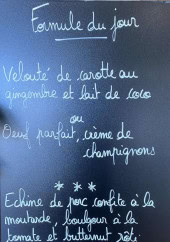 Formule du jour
Velouté de carotte au
gingembre et lait de coco
ou
Oeuf parfait, crème de
champignons
***
Echine de porc confite à la
moutarde, boulgour à la
tomate et butternut rôti